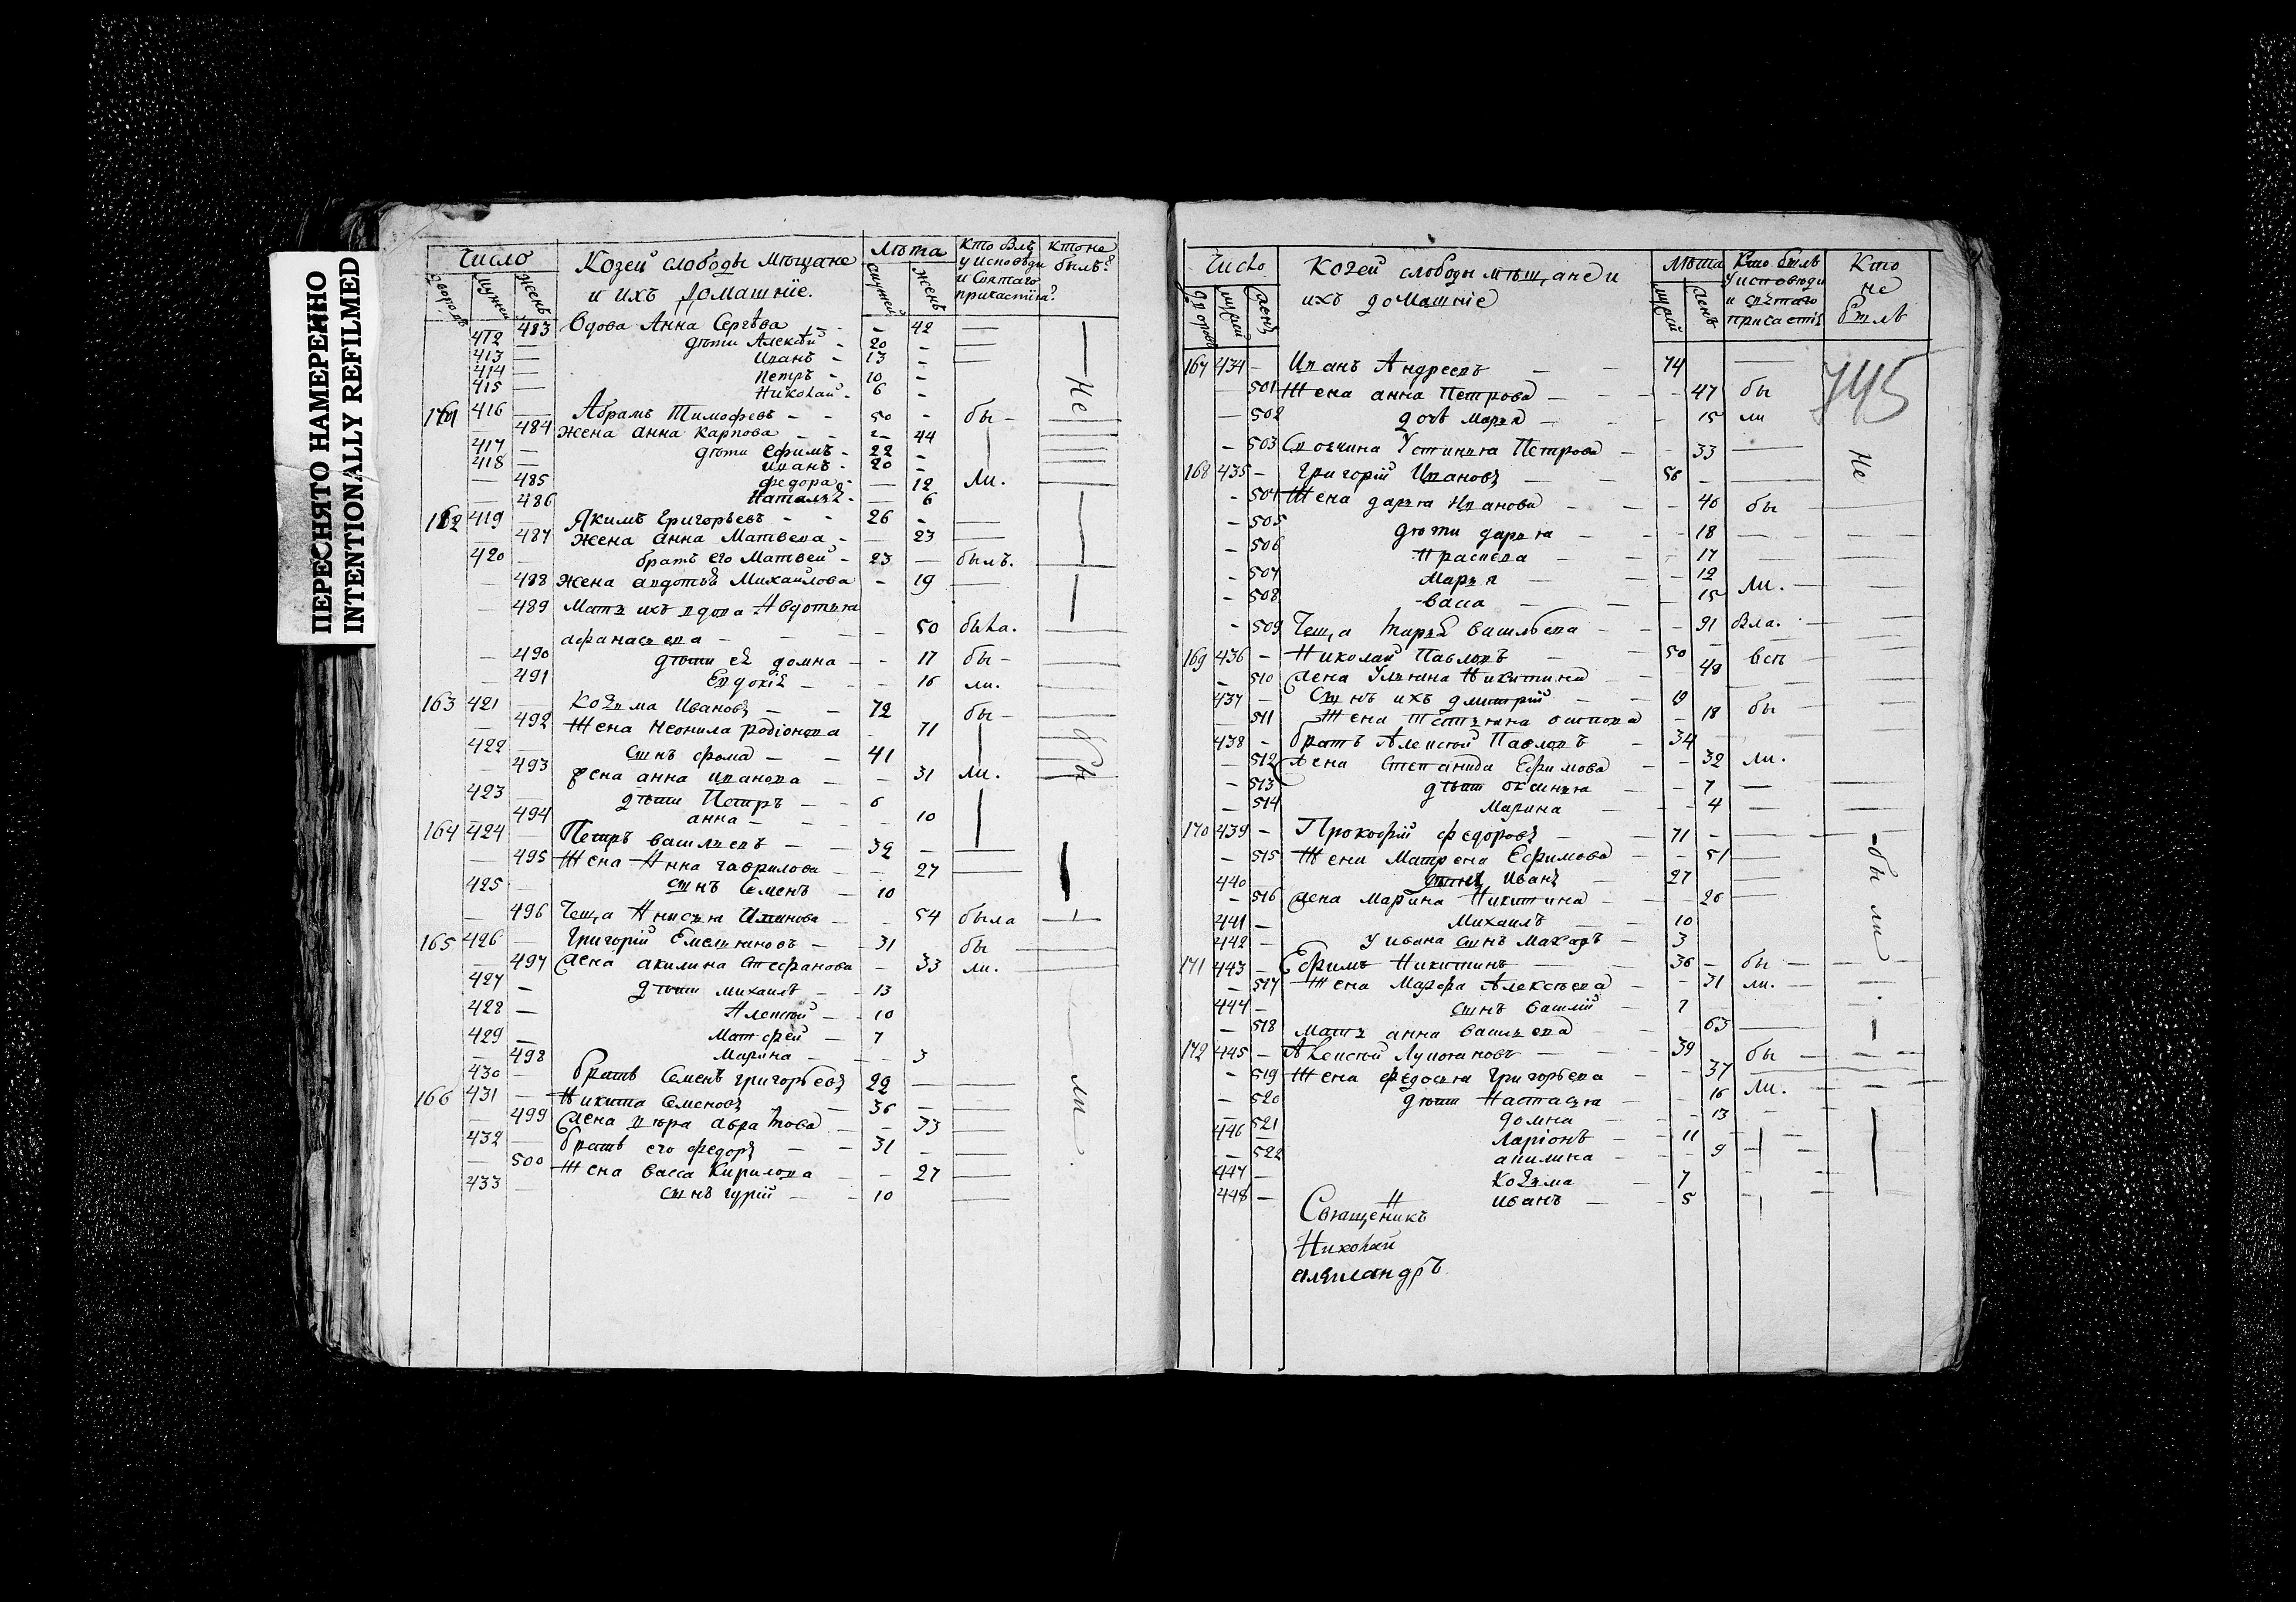 ПЕРЕСНЯТО НАМЕРЕННО
INTENTIONALLY REFILMED
Число Козей слободы Мѣщане Лѣта Кто былъ Кто не
и ихъ Домашніе. у исповѣди былъ?
и святаго
причастія?
483 Вдова Анна Сергѣва - 42
412 дѣти Алексѣй - 20
413 Иванъ - 13
414 Петръ - 10
415 Николай - 6
Не
161 416 Абрамъ Тимофевъ - 50 бы-
484 Жена Анна Карпова - 44
417 дѣти Ефимъ - 22
418 Иванъ - 20
485 Федора - 12 ли.
486 Наталья - 6
162 419 Якимъ Григорьевъ - 26
487 Жена Анна Матвева - 23
420 братъ его Матвей - 23 былъ.
488 Жена Авдотья Михайлова - 19
489 Мать ихъ вдова Авдотья
афанасьева - 50 была.
490 дѣти её домна - 17 бы-
491 Евдокія - 16 ли.
163 421 Козьма Ивановъ - 72 бы-
492 Жена Неонила родіонова 71
422 сынъ фома - 41
493 жена анна иванова - 31 ли.
423 дѣти Петръ - 6
494 анна - 10
164 424 Петръ васильевъ - 32
495 Жена Анна гаврилова - 27
425 сынъ Семенъ - 10
496 Теща Анисья - 54 была
165 426 Григорій Емельяновъ - 31 бы
497 жена акилина Стефанова - 33 ли.
427 дѣти михаилъ - 13
428 Алексѣй - 10
429 Матфей - 7
498 Марина - 3
430 братъ Семенъ григорьевъ 22
166 431 Никита Семеновъ - 36
499 жена вѣра
432 братъ его федоръ - 31
500 Жена васса Кирилова - 27
433 сынъ гурій - 10
Число Козей слободы мѣщане и Лѣта Кто былъ Кто
ихъ домашніе у исповѣди не
и святаго былъ
причастія
745
167 434 - Иванъ Андреевъ - 74
501 Жена анна Петрова - 47 бы
502 дочь Марья - 15 ли
503 Своячина Устинья Петрова - 33
Не
168 435 - Григорій Ивановъ - 56
504 Жена дарья Иванова - 40 бы
505 дѣти дарья - 18
506 Прасковя - 17
507 Марья - 12
508 васса - 15 ли.
509 Теща Марья васильева - 91 была.
169 436 - Николай Павловъ - 50
510 жена Ульяна Никитина 48
437 - Сынъ ихъ дмитрій - 19 бы
511 Жена Татьяна осипова - 18
438 - братъ Алексѣй Павловъ - 34
512 жена Степанида Ефимова - 32 ли.
513 дѣти оксинья - 7
514 Марина - 4
170 439 - Прокофій федоровъ - 71
515 Жена Матрена Ефимова - 51
440 Иванъ 27
516 жена Марина Никитина - 26
441 - Михаилъ - 10
442 - у ивана сынъ Макаръ - 3
бы ли
171 443 - Ефимъ Никитинъ - 36 - бы
517 Жена Марфа Алексѣева - 31 ли.
444 - сынъ василій 7
518 мать анна васильева 63
172 445 - Алексѣй - 39 бы
519 Жена федосья Григорьева - 37
520 дѣти Настасья - 16 ли.
521 домна - 13
446 Ларіонъ - 11
522 акилина - 9
447 - Козьма - 7
448 - иванъ - 5
Священикъ
Николай